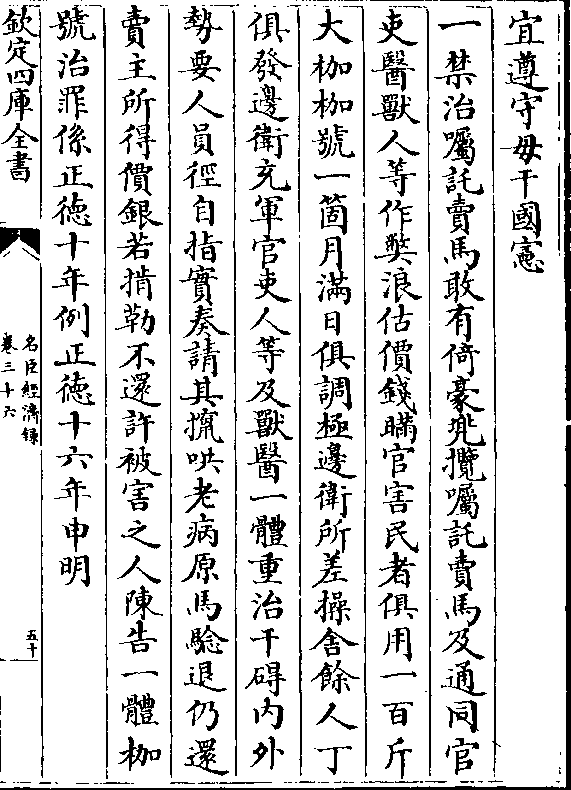 宜遵守毋干國憲
一禁治囑託賣馬敢有倚豪兠攬囑託賣馬及通同官
吏醫獸人等作弊浪估價錢瞞官害民者俱用一百斤
大枷枷號一箇月滿日俱調極邊衛所差操舍餘人丁
俱發邊衛充軍官吏人等及獸醫一體重治干碍内外
勢要人員徑自指實奏請其㨪哄老病原馬驗退仍還
賣主所得價銀若掯勒不還許被害之人陳告一體枷
號治罪係正徳十年例正徳十六年申明
欽定四庫全書
名臣經濟錄
卷三十六
五十